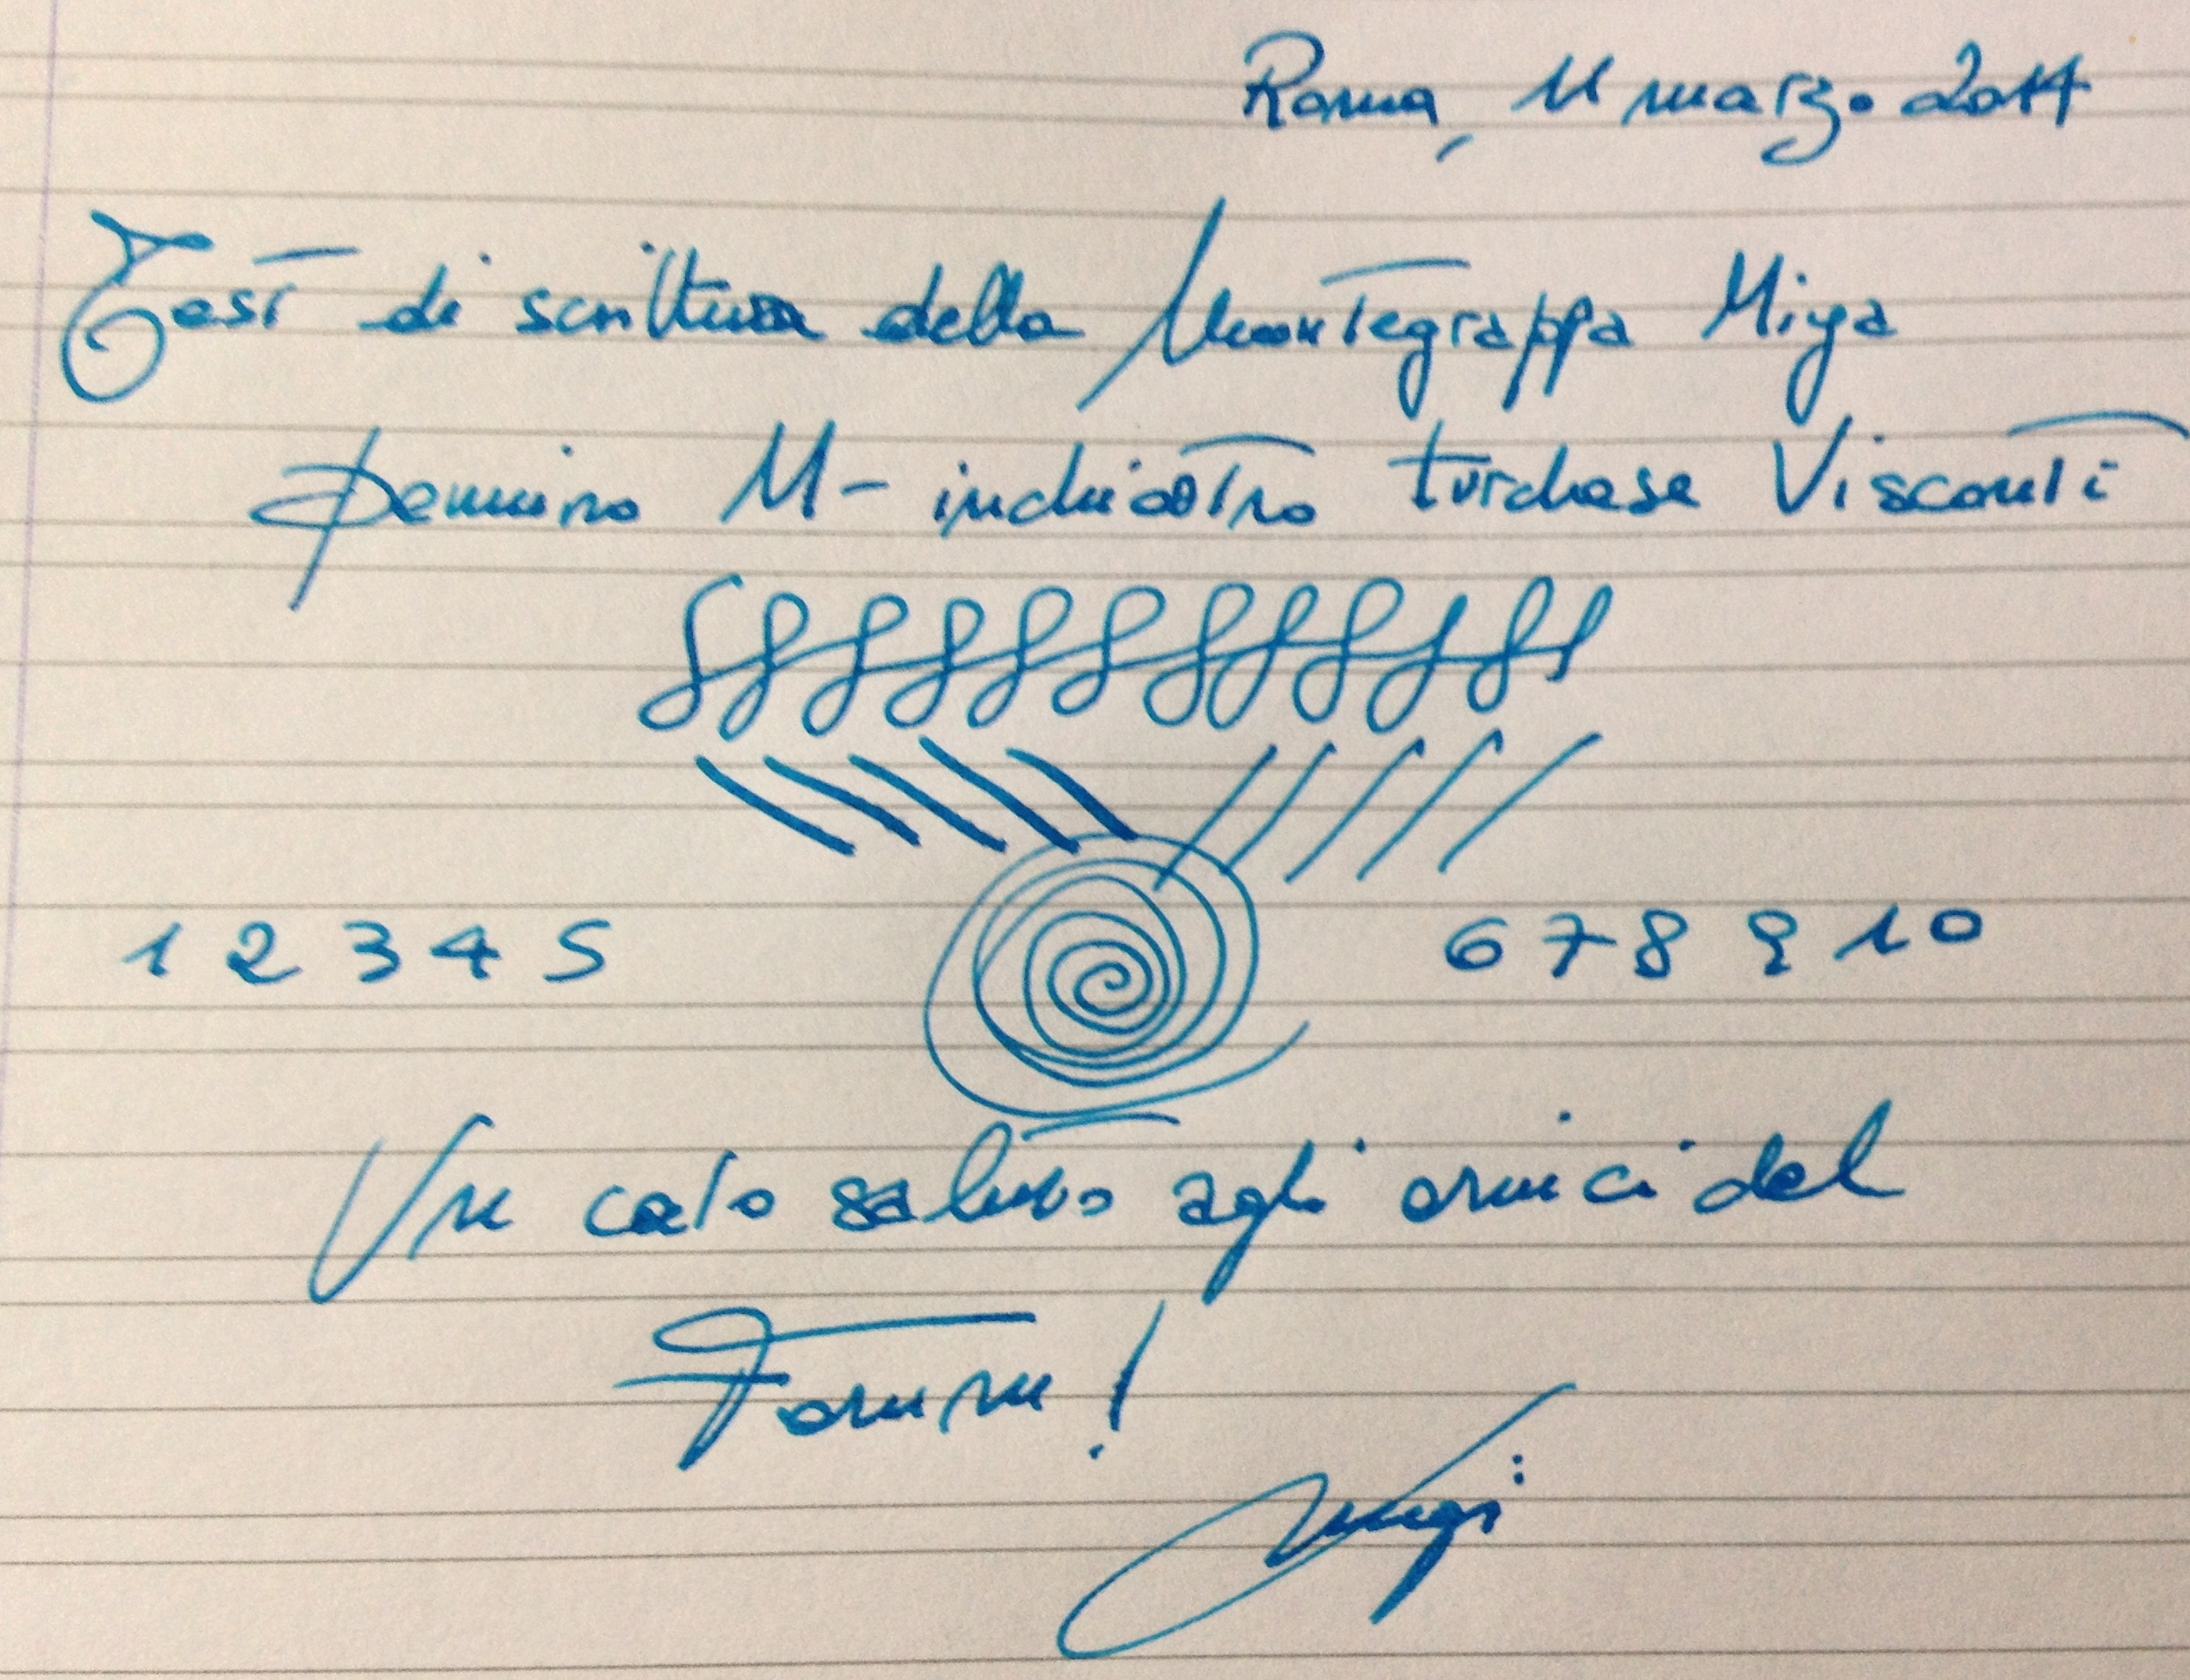 Roma, 11 marzo 2014
Test di scrittura della Montegrappa Miya
pennino M - inchiostro turchese Visconti
1 2 3 4 5 6 7 8 9 10
Un caro saluto agli amici del
Forum!
Luigi